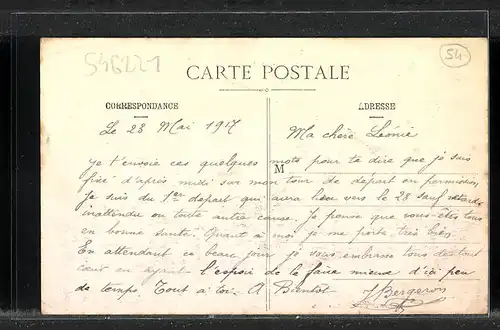 546221
54
CARTE POSTALE
CORRESPONDANCE
ADRESSE
Le 28 Mai 1917
Ma chère Léonie
M
Je t'envoie ces quelques mots pour te dire que je suis
fixé d'après midi sur mon tour de départ en permission
Je suis du 1er départ qui aura lieu vers le 28 sauf retards
inattendu ou toute autre cause. Je pense que vous êtes tous
en bonne santé. Quant à moi je me porte très bien.
En attendant ce beau jour je vous embrasse tous de tout
cœur en ayant l'espoir de le faire mieux d'ici peu
de temps. Tout à toi. A Bientôt
Bergeron